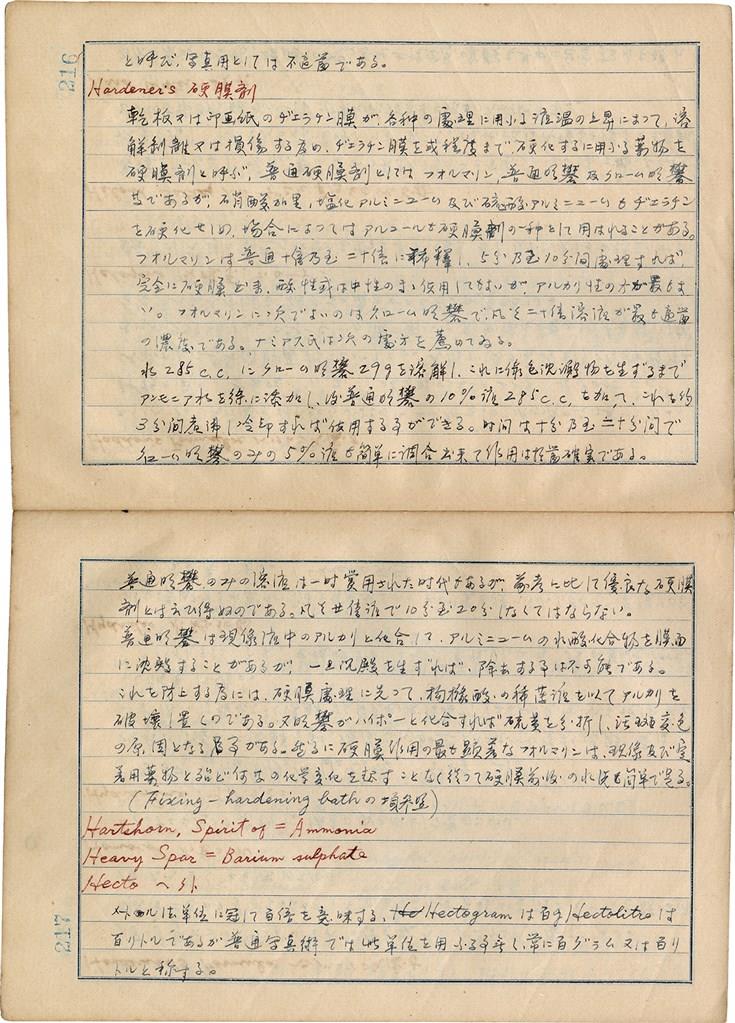 216
と呼び、写真用としては不適当である。
Hardener's 硬膜剤
乾板又は印画紙のヂェラチン膜が、各種の處理に用ふる液温の上昇によって、溶
解剝離又は損傷する為め、ヂェラチン膜を或程度まで硬化するに用ふる薬物を
硬膜剤と呼ぶ。普通硬膜剤としては フォルマリン、普通明礬及クローム明礬
等であるが、硝酸加里、塩化アルミニューム及び硫酸アルミニュームもヂェラチン
を硬化せしめ、場合によってはアルコールも硬膜剤の一種として用ゐれることがある。
フォルマリンは普通十倍乃至二十倍に稀釋し、5分乃至10分間處理すれば、
完全に硬膜出来、酸性或は中性のまゝ使用してもよいが、アルカリ性の方が最もよ
い。フォルマリンに次でよいのはクローム明礬で、凡そ二十倍溶液が最も適當
の濃度である。ナミアス氏は次の處方を薦めてゐる。
水 285 c.c. にクローム明礬 29g を溶解し、これに緑色沈澱物を生ずるまで
アンモニア水を徐に添加し、後普通明礬の10%液 285 c.c. を加へて、これを約
3分間煮沸し冷却すれば使用する事ができる。時間は十分乃至二十分間で
クローム明礬のみの5%液も簡単に調合出来て作用は極當確実である。
普通明礬のみの溶液は一時賞用された時代もあるが、前者に比して優良な硬膜
剤とは云ひ得ぬのである。凡そ廿倍液で10分至20分しなくてはならない。
普通明礬は現像液中のアルカリと化合して、アルミニュームの水酸化合物を膜面
に沈殿することがあるが、一旦沈殿を生ずれば、除去する事は不可能である。
これを防止する為には、硬膜處理に先って、枸櫞酸の稀薄液を以てアルカリを
破壊し置くのである。又明礬がハイポーと化合すれば硫黄を分析し、
の原因となる事がある。然るに硬膜作用の最も顕著なフォルマリンは、現像及び定
着用薬物と殆ど何等の化学変化を起すことなく従って硬膜前後の水洗も簡単で足る。
(Fixing - hardening bath の項参照)
Hartshorn, Spirit of = Ammonia
Heavy Spar = Barium sulphate
Hecto ヘクト
メートル法単位に冠して百倍を意味する、Hectogram は百g Hectolitre は
百リトルであるが普通写真術では此単位を用ふる事無く、常に百グラム又は百リ
トルと称する。
217